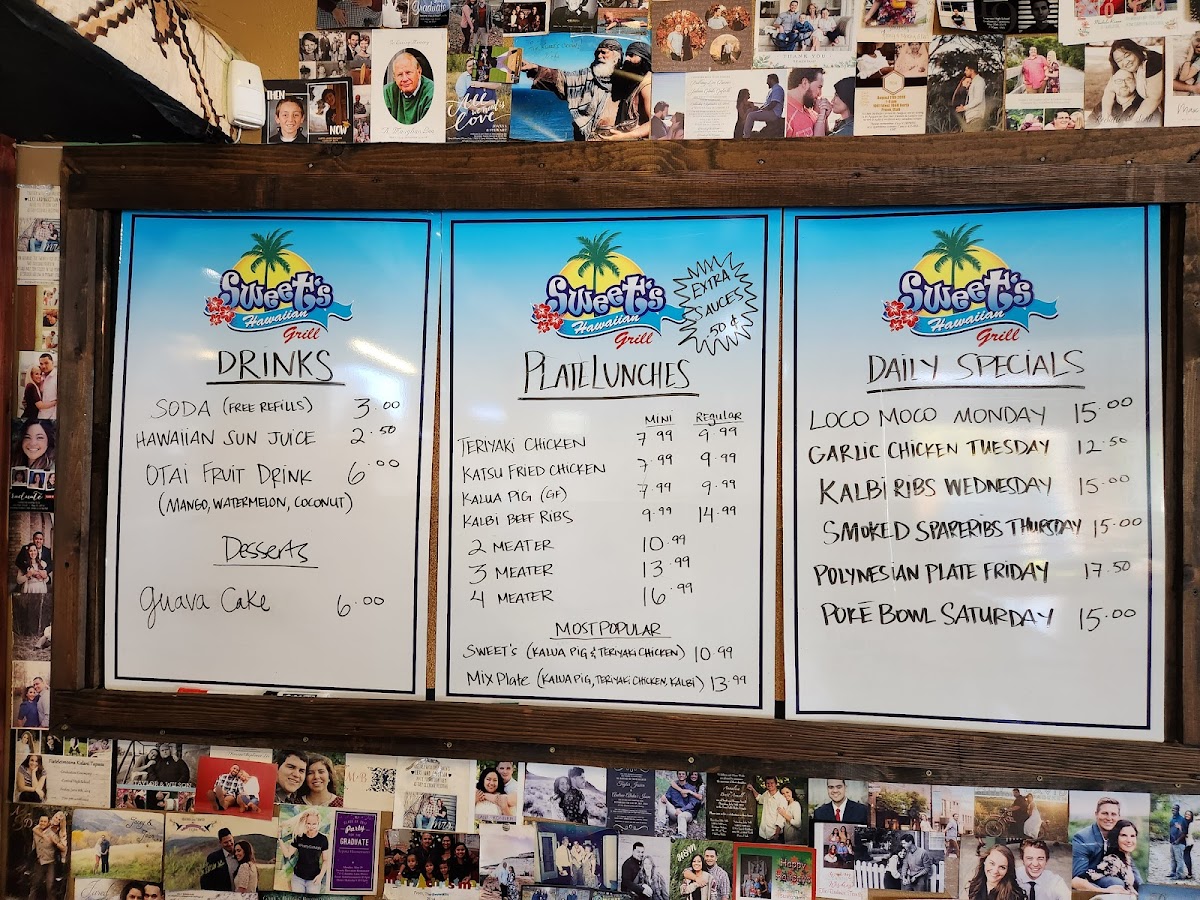 Graduate
In Loving Memory
All
you need is
love
THANK YOU
THEN
NOW
Sweet's
Hawaiian
Grill
DRINKS
SODA (FREE REFILLS) 3.00
HAWAIIAN SUN JUICE 2.50
OTAI FRUIT DRINK 6.00
(MANGO, WATERMELON, COCONUT)
Desserts
Guava Cake 6.00
Sweet's
Hawaiian
Grill
EXTRA
SAUCES
.50¢
PLATE LUNCHES
MINI REGULAR
TERIYAKI CHICKEN 7.99 9.99
KATSU FRIED CHICKEN 7.99 9.99
KALUA PIG (GF) 7.99 9.99
KALBI BEEF RIBS 9.99 14.99
2 MEATER 10.99
3 MEATER 13.99
4 MEATER 16.99
MOST POPULAR
SWEET'S (KALUA PIG & TERIYAKI CHICKEN) 10.99
MIX PLATE (KALUA PIG, TERIYAKI CHICKEN, KALBI) 13.99
Sweet's
Hawaiian
Grill
DAILY SPECIALS
LOCO MOCO MONDAY 15.00
GARLIC CHICKEN TUESDAY 12.50
KALBI RIBS WEDNESDAY 15.00
SMOKED SPARERIBS THURSDAY 15.00
POLYNESIAN PLATE FRIDAY 17.50
POKĒ BOWL SATURDAY 15.00
TAYLOR & WILSON
Party
GRADUATE